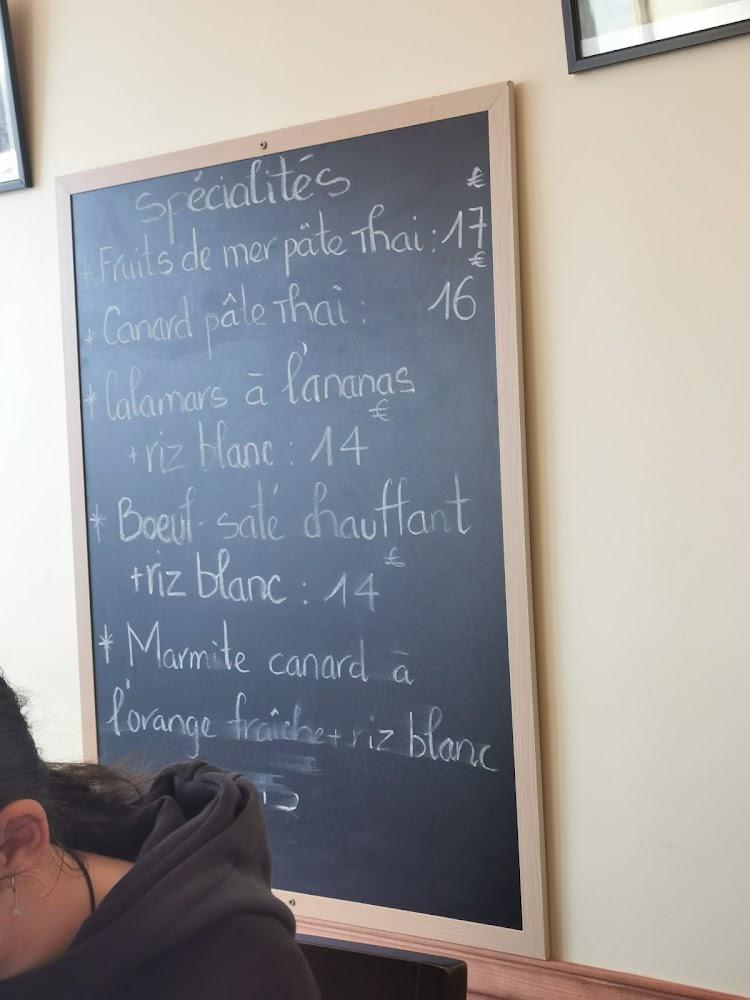 Spécialités
€
* Fruits de mer pâte Thaï : 17
€
* Canard pâte Thaï : 16
* Calamars à l'ananas
€
+ riz blanc : 14
* Boeuf saté chauffant
€
+ riz blanc : 14
* Marmite canard à
l'orange fraîche + riz blanc